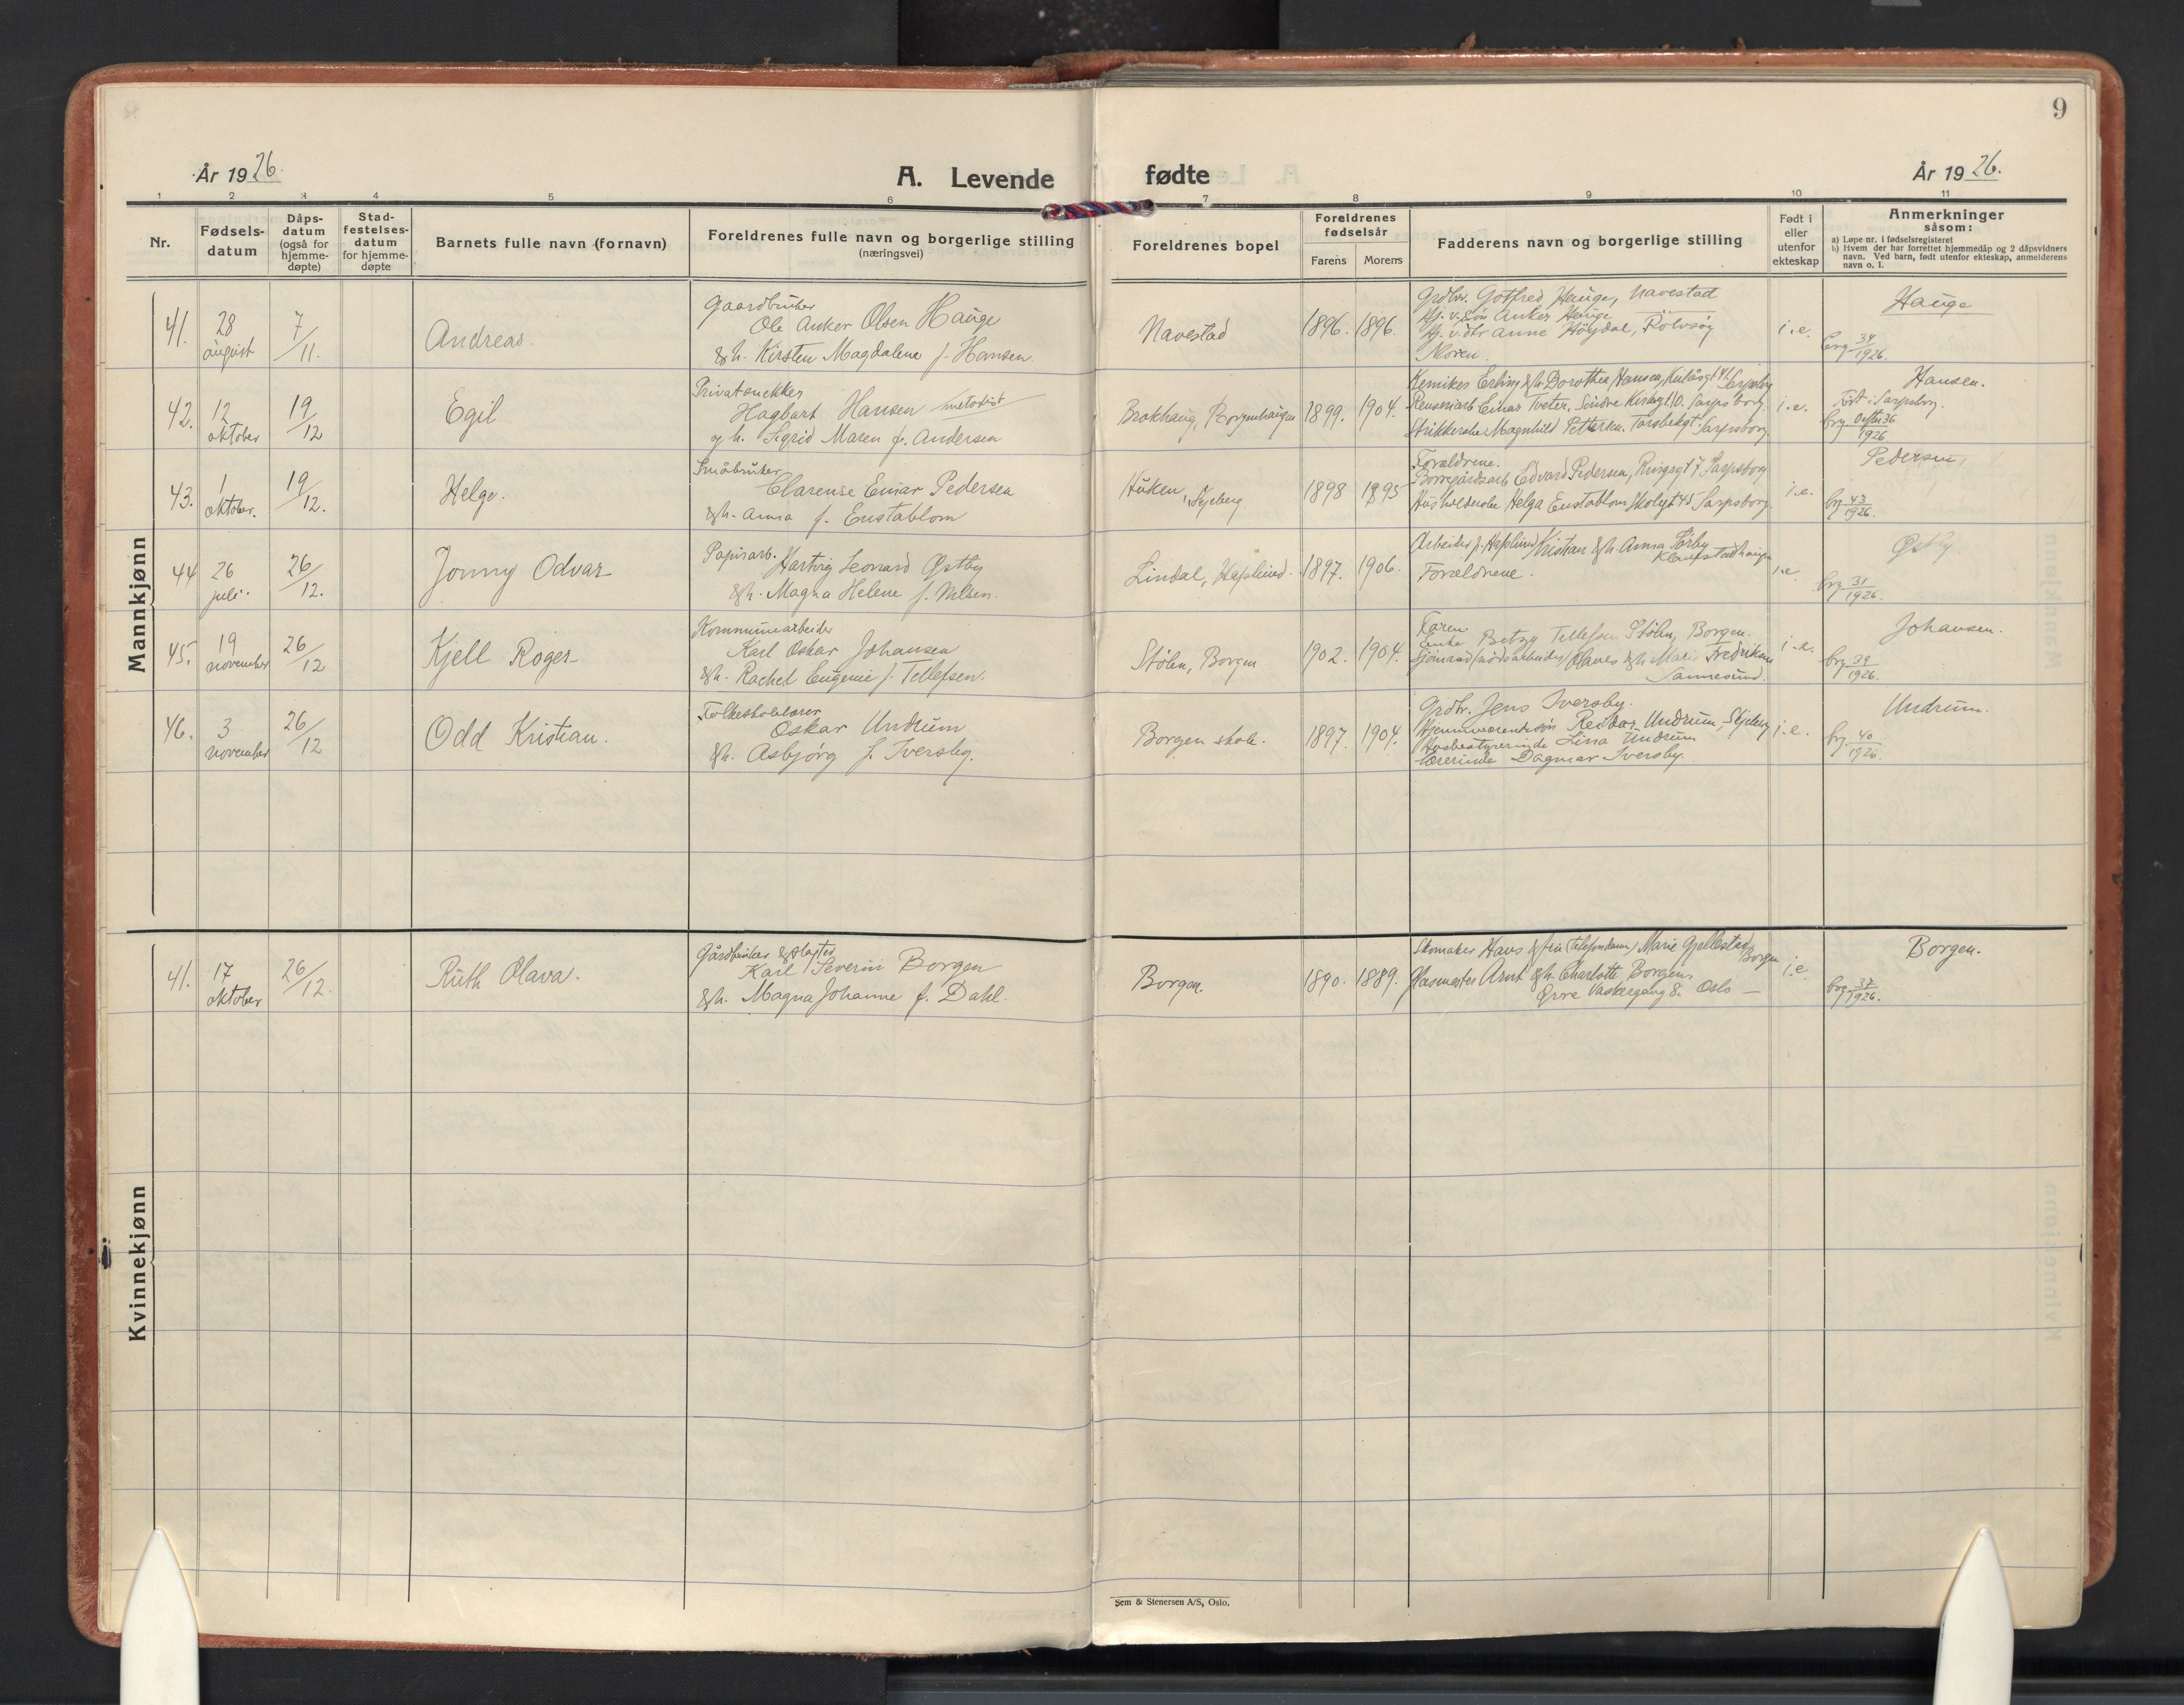 9
År 1926.
A. Levende fødte
År 1926.
1 2 3 4 5 6 7 8 9 10 11
Nr.
Fødsels-
datum
Dåps-
datum
(også for
hjemme-
døpte)
Stad-
festelses-
datum
for hjemme-
døpte
Barnets fulle navn (fornavn)
Foreldrenes fulle navn og borgerlige stilling
(næringsvei)
Foreldrenes bopel
Foreldrenes
fødselsår
Farens Morens
Fadderens navn og borgerlige stilling
Født i
eller
utenfor
ekteskap
Anmerkninger
såsom:
a) Løpe nr. i fødselsregisteret
b) Hvem der har forrettet hjemmedåp og 2 dåpsvidners
navn. Ved barn, født utenfor ekteskap, anmelderens
navn o. l.
Mannkjønn
41. 28 august 7/11. Andreas.
Gaardbruker
Ole Anker Olsen Hauge
& h. Kirsten Magdalene f. Hansen.
Navestad 1896. 1896.
Grdbr. Gotfred Hauge, Navestad
Hj. v. søn Anker Hauge
Hj. v. dtr Anne Høygdal, Rolvsøy
Moren.
i.e.
Hauge
brg 34/1926.
42. 12 oktober 19/12 Egil
Privatsnekker
Hagbart Hansen metodist
og h. Sigrid Maren f. Andersen
Brokhaug, Borgenhaugen 1899. 1904.
Kemiker Erling & h. Dorothea Hansen, Kulåsgt 41 Sarpsborg
Renseriarb. Einar Tveter, Søndre Kirkegt 10. Sarpsborg
Strikkerske Magnhild Pettersen. Torsbekgt. Sarpsborg.
i.e.
Hansen.
Født i Sarpsborg.
brg 36/1926
43. 1 oktober. 19/12. Helge.
Småbruker
Clarense Einar Pedersen
& h. Anna f. Enstablom
Huken, Skjeberg 1898 1895
Foreldrene.
Borregårdsarb. Edvard Pedersen, Ringsgt 7 Sarpsborg
Husholderske Helga Enstablom Skolegt 45 Sarpsborg.
i.e.
Pedersen,
brg 43/1926.
44 26 juli. 26/12. Jonny Odvar
Papirarb. Hartvig Leonard Østby
& h. Magna Helene f. Nilsen.
Lindal, Hafslund. 1897. 1906.
Arbeider p. Hafslund Kristian & h. Anna Sørby
Klavestadhaugen
Foreldrene.
i.e.
Østby
brg 31/1926.
45. 19 november 26/12 Kjell Roger
Kommunearbeider
Karl Oskar Johansen
& h. Rachel Eugenie f. Tellefsen.
Stølen, Borgen 1902. 1904.
Faren.
Enke Betzy Tellefsen Stølen, Borgen.
Sjømand (nødsarbeider) Olaves & h. Marie Fredriksen
Sannesund.
i.e.
Johansen.
brg 39/1926.
46. 3 november 26/12 Odd Kristian.
Folkeskolelærer
Oskar Undrum
& h. Asbjørg f. Iversby.
Borgen skole. 1897. 1904.
Grdbr. Jens Iversby.
Hjemmeværende søn Reidar Undrum, Skjeberg
Husbestyrerinde Lina Undrum
Lærerinde Dagmar Iversby.
i.e.
Undrum.
brg. 40/1926.
Kvinnekjønn
41. 17 oktober 26/12. Ruth Olava.
Gårdbruker & slagter
Karl Severin Borgen
& h. Magna Johanne f. Dahl.
Borgen. 1890. 1889.
Skomaker Hans & fru (telefondame) Marie Gjellestad, Borgen
Glasmester Arnt & h. Charlotte Borgen,
Øvre Vaskergang 8. Oslo —
i.e.
Borgen.
brg 37/1926.
Sem & Stenersen A/S, Oslo.